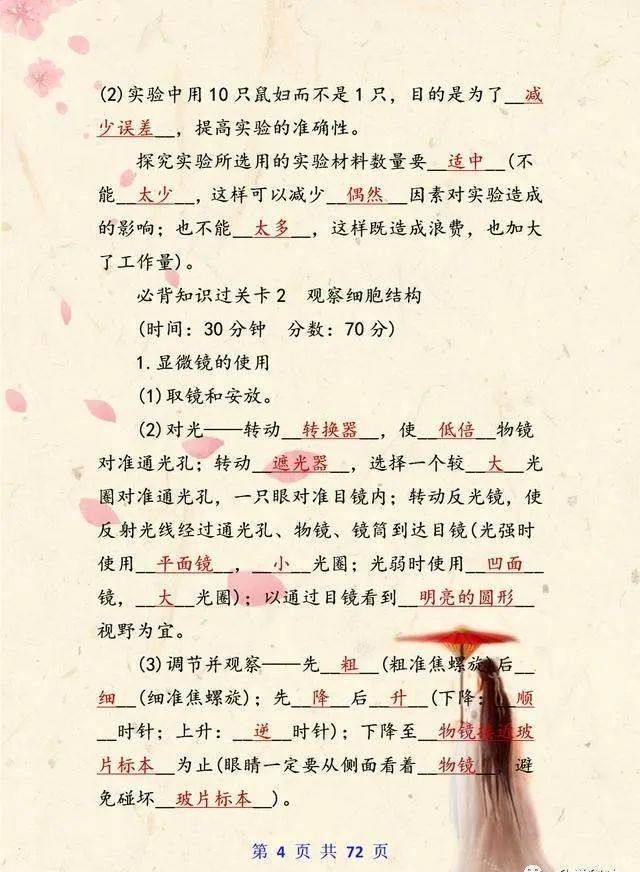 (2)实验中用10只鼠妇而不是1只，目的是为了__减
少误差__，提高实验的准确性。
探究实验所选用的实验材料数量要__适中__(不
能__太少__，这样可以减少__偶然__因素对实验造成
的影响；也不能__太多__，这样既造成浪费，也加大
了工作量)。
必背知识过关卡2　观察细胞结构
(时间：30分钟　分数：70分)
1.显微镜的使用
(1)取镜和安放。
(2)对光——转动__转换器__，使__低倍__物镜
对准通光孔；转动__遮光器__，选择一个较__大__光
圈对准通光孔，一只眼对准目镜内；转动反光镜，使
反射光线经过通光孔、物镜、镜筒到达目镜(光强时
使用__平面镜__，__小__光圈；光弱时使用__凹面__
镜，__大__光圈)；以通过目镜看到__明亮的圆形__
视野为宜。
(3)调节并观察——先__粗__(粗准焦螺旋)后__
细__(细准焦螺旋)；先__降__后__升__(下降：__顺
__时针；上升：__逆__时针)；下降至__物镜接近玻
片标本__为止(眼睛一定要从侧面看着__物镜__，避
免碰坏__玻片标本__)。
第 4 页 共 72 页